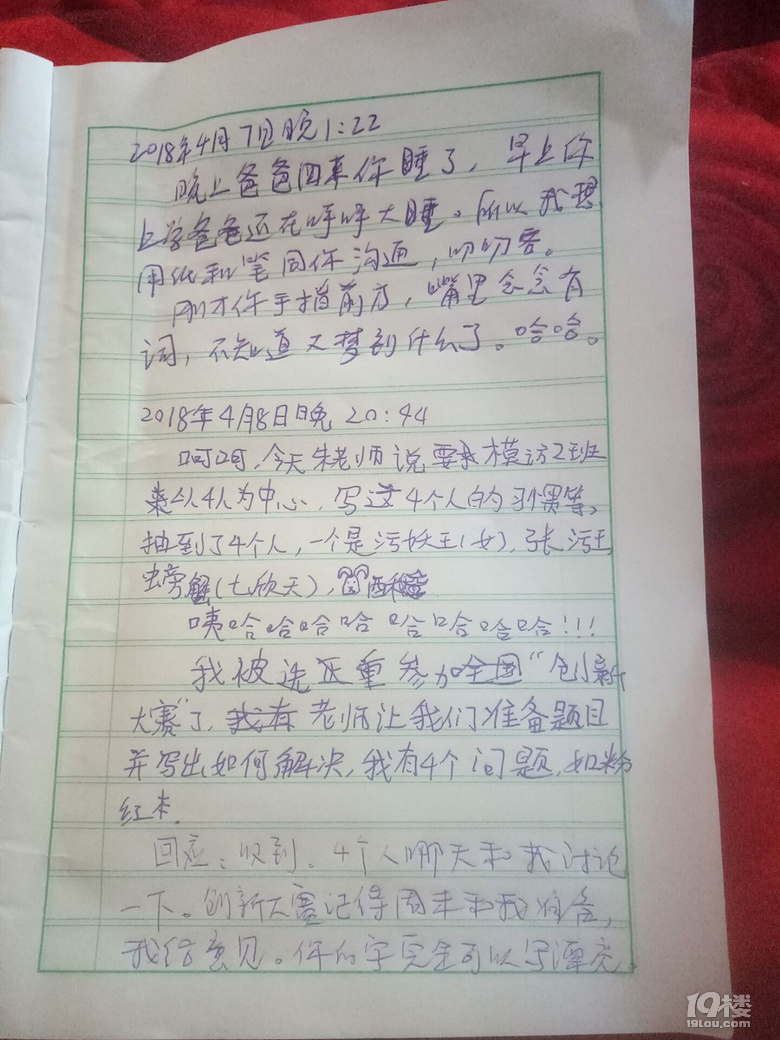 2018年4月7日晚1:22
晚上爸爸回来你睡了，早上你
上学爸爸还在呼呼大睡。所以我想
用纸和笔同你沟通，叨叨客。
刚才你手指前方，嘴里念念有
词，不知道又梦到什么了。哈哈。
2018年4月8日晚 20:44
呵呵，今天朱老师说要模访2班
来以4人为中心，写这4个人的习惯等，
抽到了4个人，一个是污妖王(女)，张污王
螃蟹(七欣天)，西
咦哈哈哈哈哈哈哈哈!!!
我被选正重参加全国"创新
大赛"了，老师让我们准备题目
并写出如何解决，我有4个问题，如粉
红本.
回应：收到。4个人哪天和我讨论
一下。创新大赛记得周末和我准备，
我给意见。你的字完全可以写漂亮
19楼
19lou.com